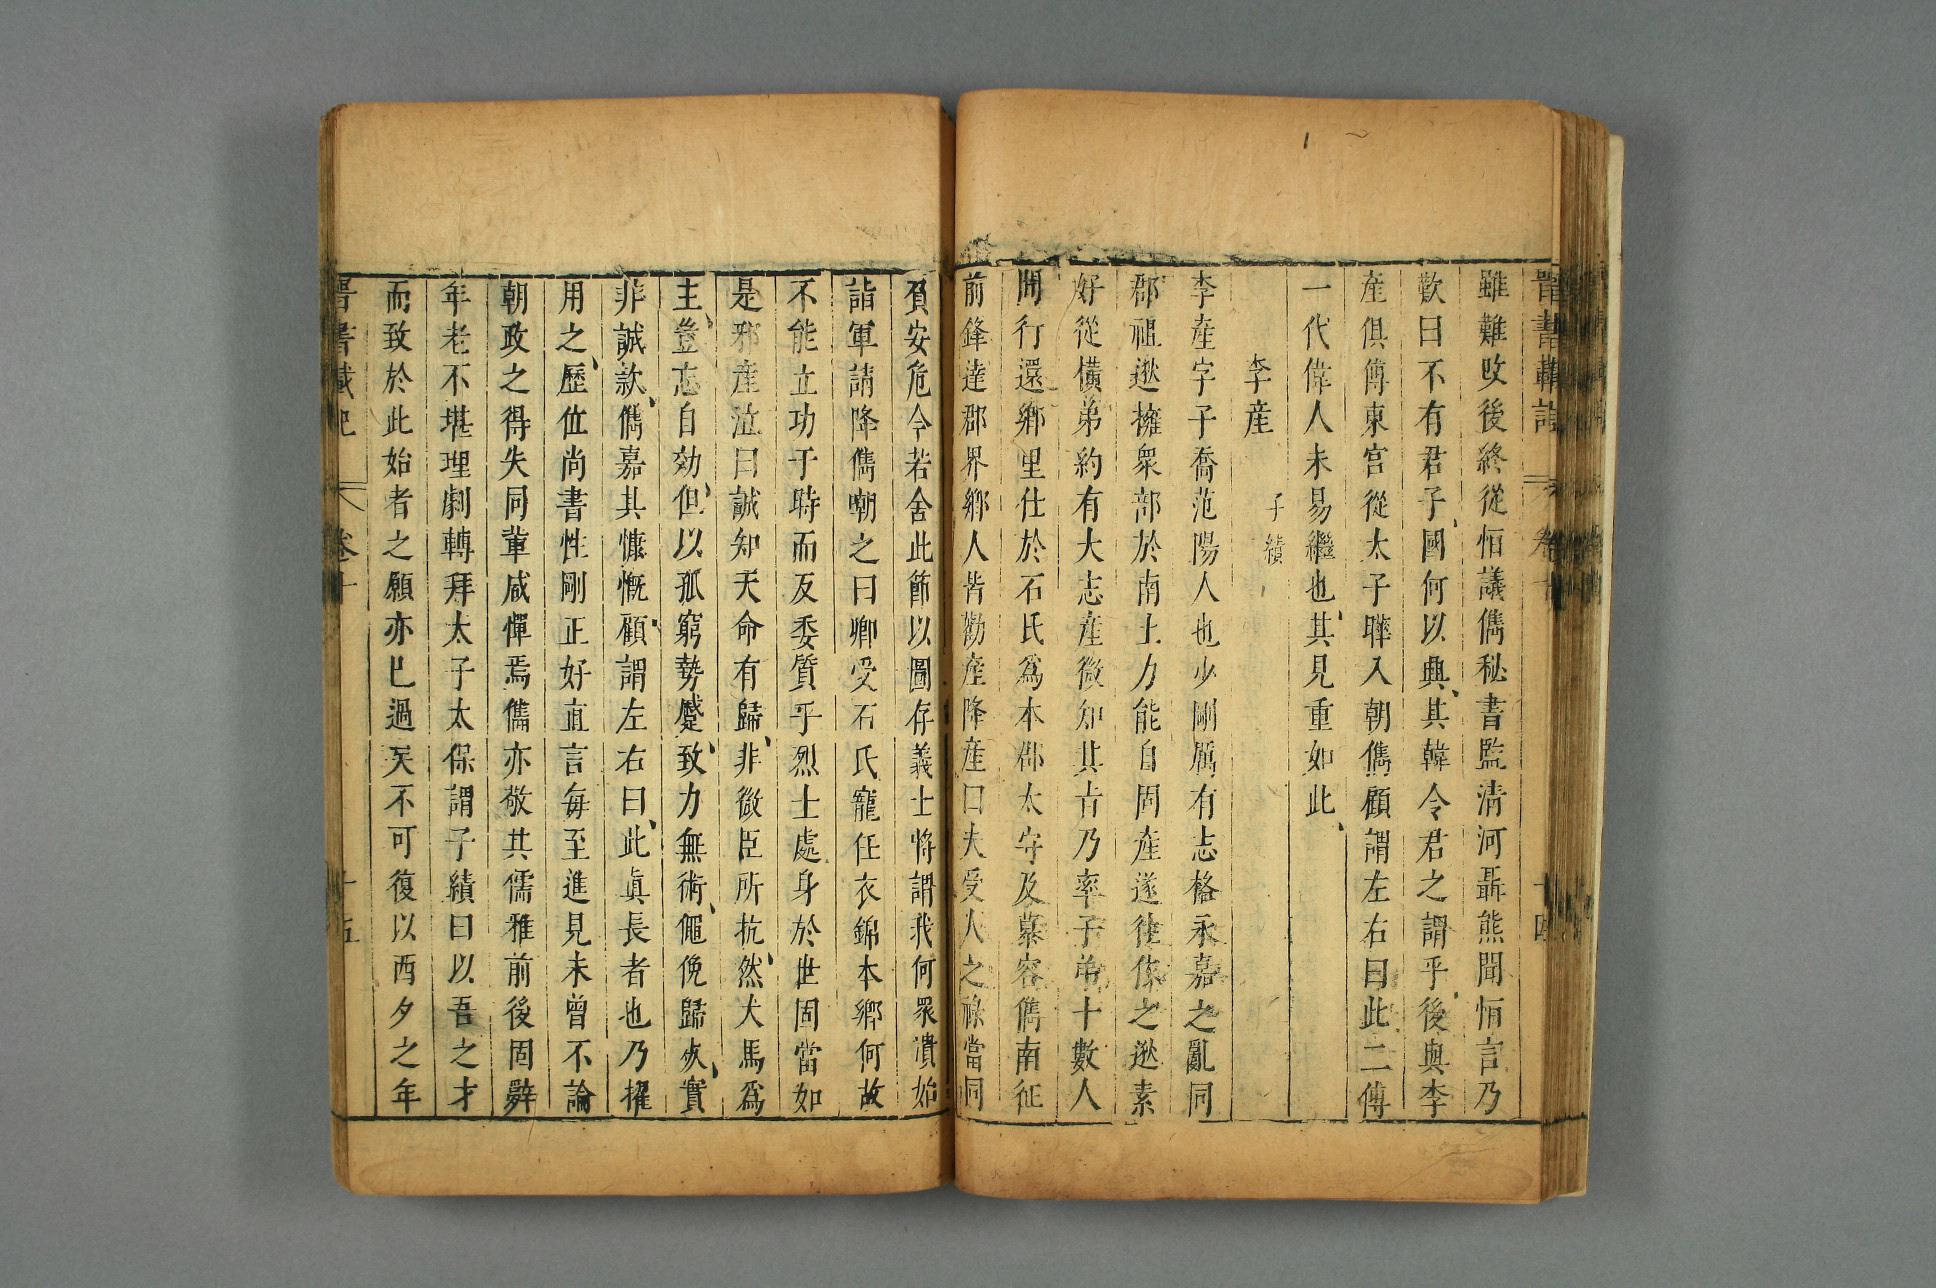 雖難敗後終從恒議儁秘書監清河聶熊聞恒言乃
歎曰不有君子國何以興其韓令君之謂乎後與李
產俱傅東宮從太子曄入朝儁顧謂左右曰此二傅
一代偉人未易繼也其見重如此
李產 子績
李產字子喬范陽人也少剛厲有志格永嘉之亂同
郡祖逖擁眾部於南土力能自固產遂往依之逖素
好從橫弟約有大志產微知其旨乃率子弟十數人
間行還鄉里仕於石氏為本郡太守及慕容儁南征
前鋒達郡界鄉人皆勸產降產曰夫受人之祿當同
其安危今若舍此節以圖存義士將謂我何眾潰始
詣軍請降儁嘲之曰卿受石氏寵任衣錦本鄉何故
不能立功于時而反委質乎烈士處身於世固當如
是邪產泣曰誠知天命有歸非微臣所抗然犬馬為
主豈忘自効但以孤窮勢蹙致力無術僶俛歸死實
非誠款儁嘉其慷慨顧謂左右曰此真長者也乃擢
用之歷位尚書性剛正好直言每至進見未曾不論
朝政之得失同輩咸憚焉儁亦敬其儒雅前後固辭
年老不堪理劇轉拜太子太保謂子績曰以吾之才
而致於此始者之願亦已過矣不可復以西夕之年
卷十 十五